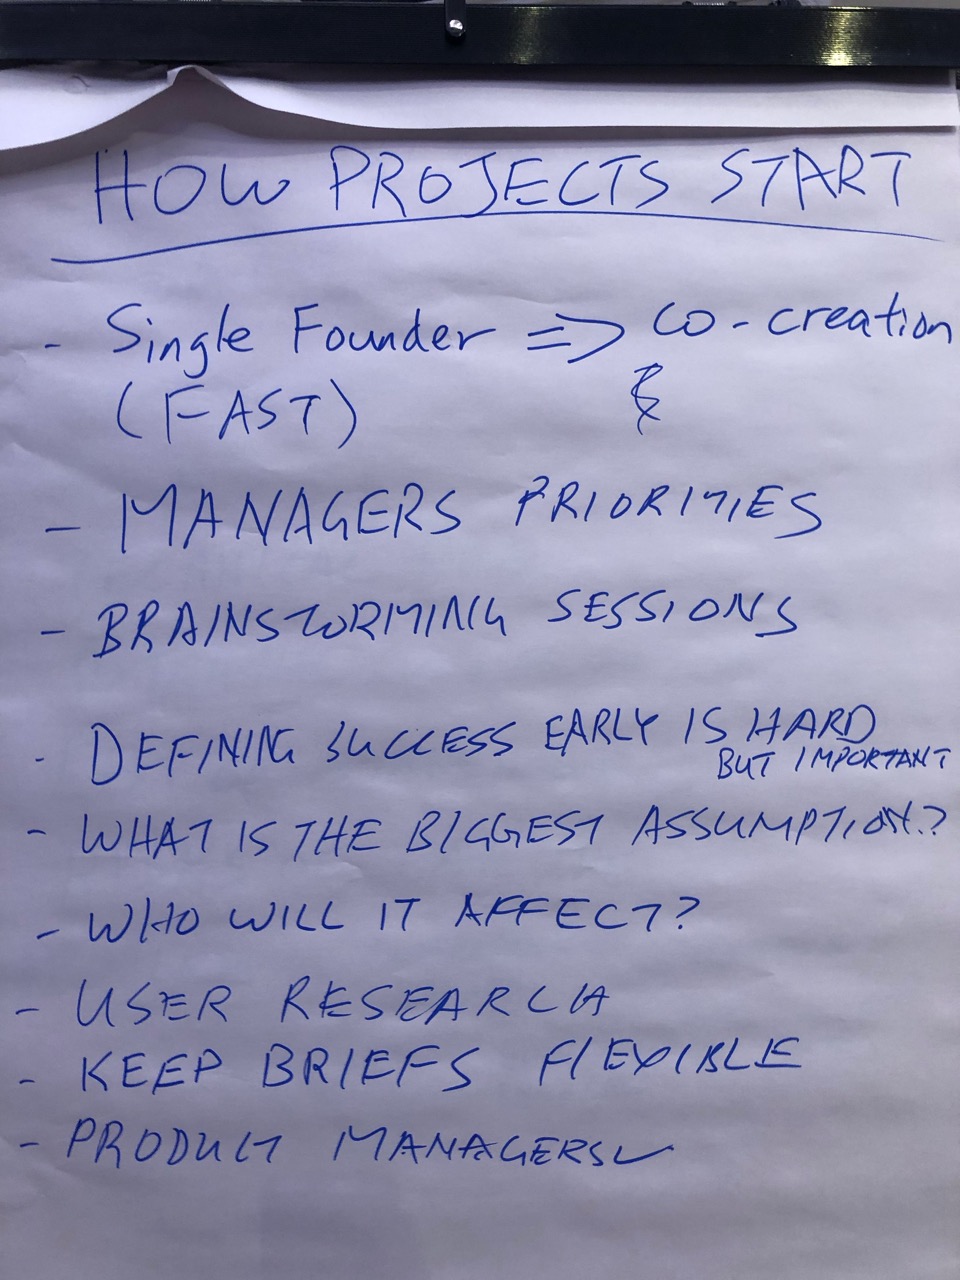 HOW PROJECTS START
- Single Founder => co-creation
(FAST)
- MANAGERS PRIORITIES
- BRAINSTORMING SESSIONS
- DEFINING SUCCESS EARLY IS HARD
BUT IMPORTANT
- WHAT IS THE BIGGEST ASSUMPTION.?
- WHO WILL IT AFFECT?
- USER RESEARCH
- KEEP BRIEFS FLEXIBLE
- PRODUCT MANAGERS